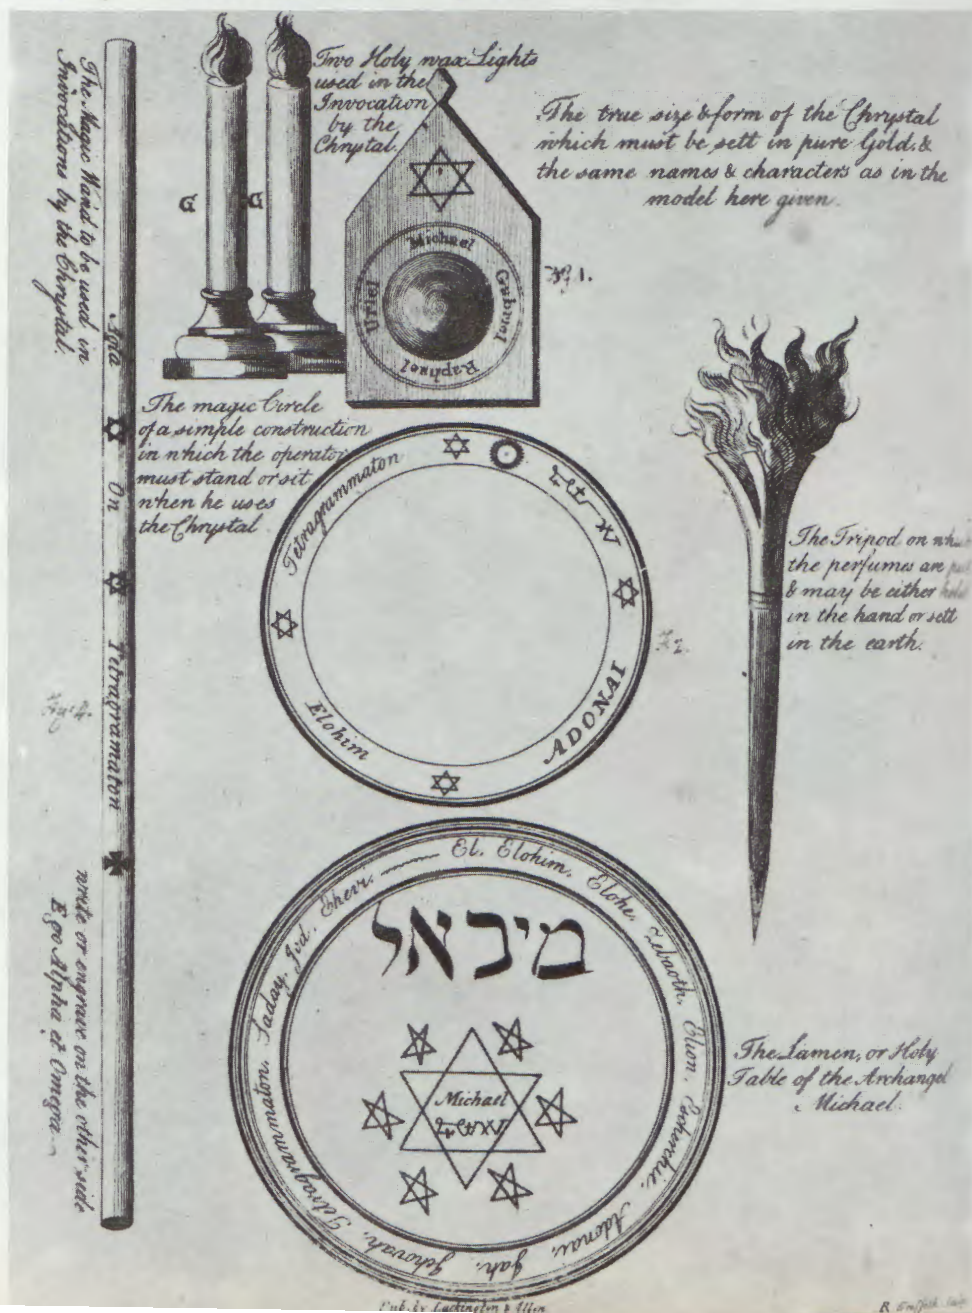 The Magic Wand to be used in
Invocations by the Chrystal.
Agla
On
Tetragramaton
write or engrave on the other side
Ego Alpha et Omega
Two Holy wax Lights
used in the
Invocation
by the
Chrystal.
G
G
Michael
Gabriel
Raphael
Uriel
The true size & form of the Chrystal
which must be sett in pure Gold. &
the same names & characters as in the
model here given.
Fig 1.
The magic Circle
of a simple construction
in which the operator
must stand or sit
when he uses
the Chrystal
Tetragrammaton
ADONAI
Elohim
The Tripod on
the perfumes are
& may be either
in the hand or sett
in the earth.
El. Elohim. Elohe. Zebaoth. Elion. Adonai. Jah. Jehovah. Tetragrammaton. Saday. Jod.
מיכאל
Michael
The Lamen, or Holy
Table of the Archangel
Michael.
Pub. by Lackington & Allen
R